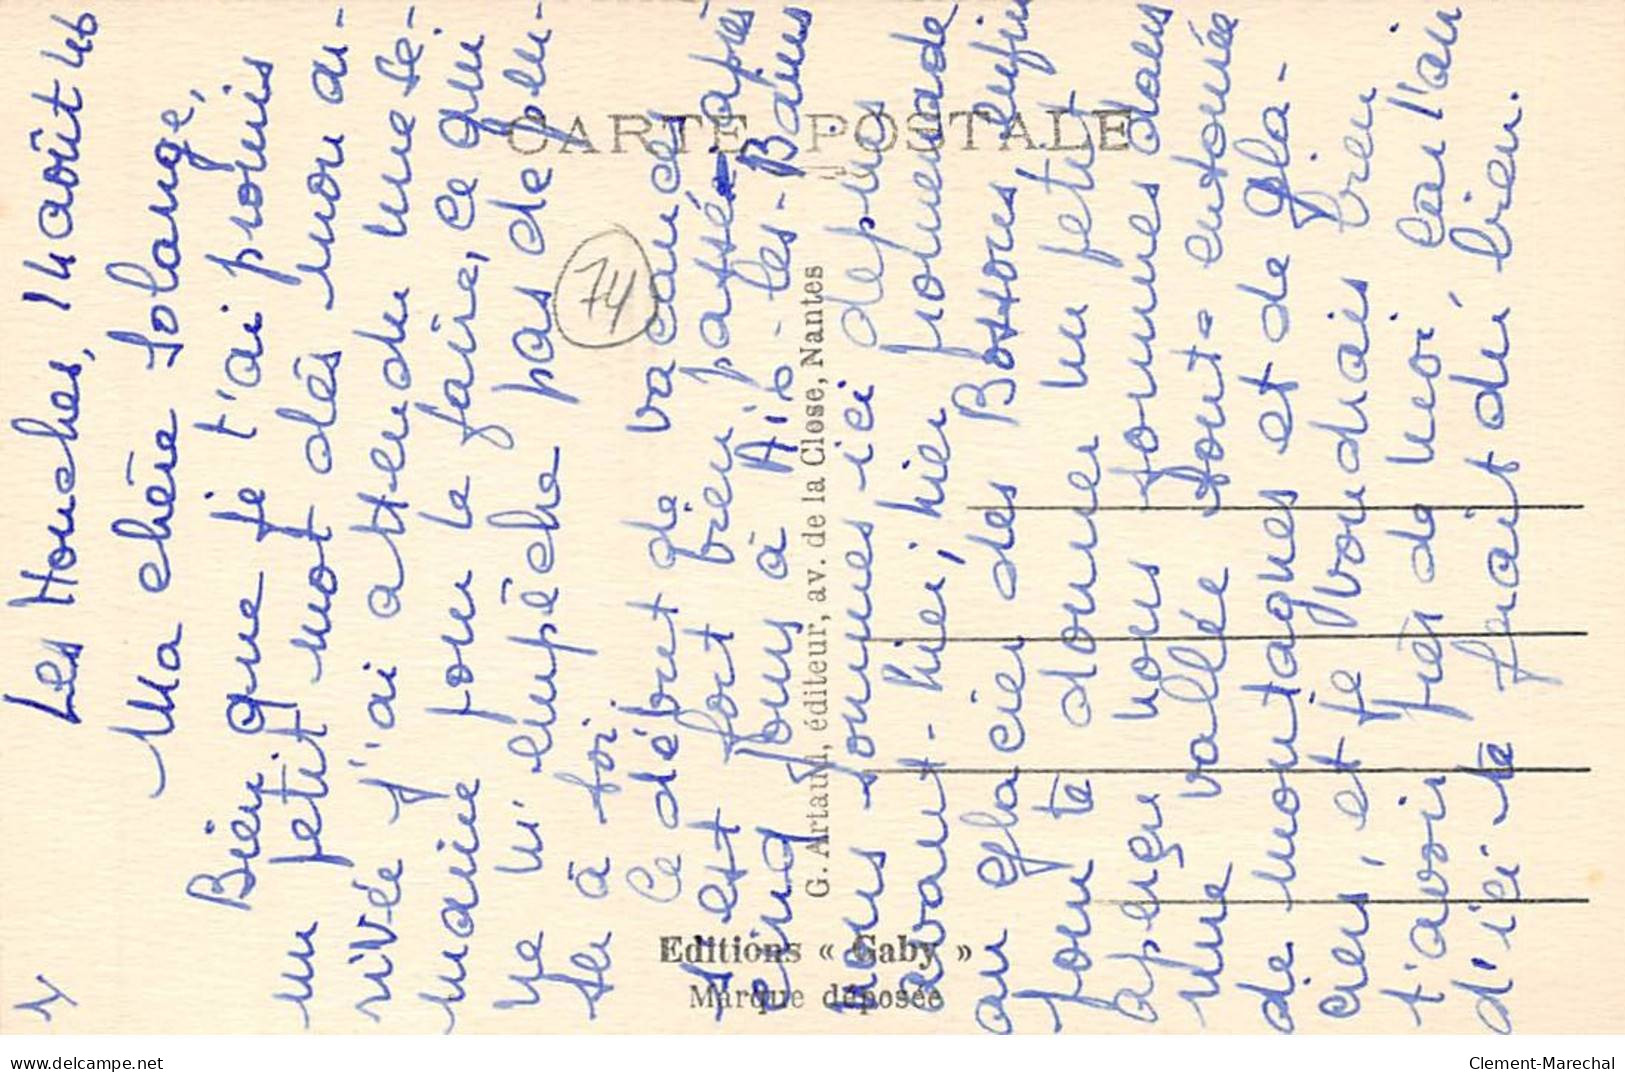 1/
Les Houches, 14 août 46
Ma chère Solange,
Bien que je t'ai promis
un petit mot dès mon ar-
rivée j'ai attendu une se-
maine pour le faire, ce qui
ne m'empêche pas de pen-
ser à toi.
Ce début de vacances
s'est fort bien passé après
cinq jours à Aix-les-Bains
nous sommes ici depuis
avant-hier; hier promenade
au glacier des Bossons, enfin
pour te donner un petit
aperçu nous sommes dans
une vallée toute entourée
de montagnes et de gla-
ciers, et je voudrais bien
t'avoir près de moi car l'air
d'ici te ferait du bien.
74
CARTE POSTALE
G. Artaud, éditeur, av. de la Close, Nantes
Editions « Gaby »
Marque déposée
delcampe.net
Clement-Marechal